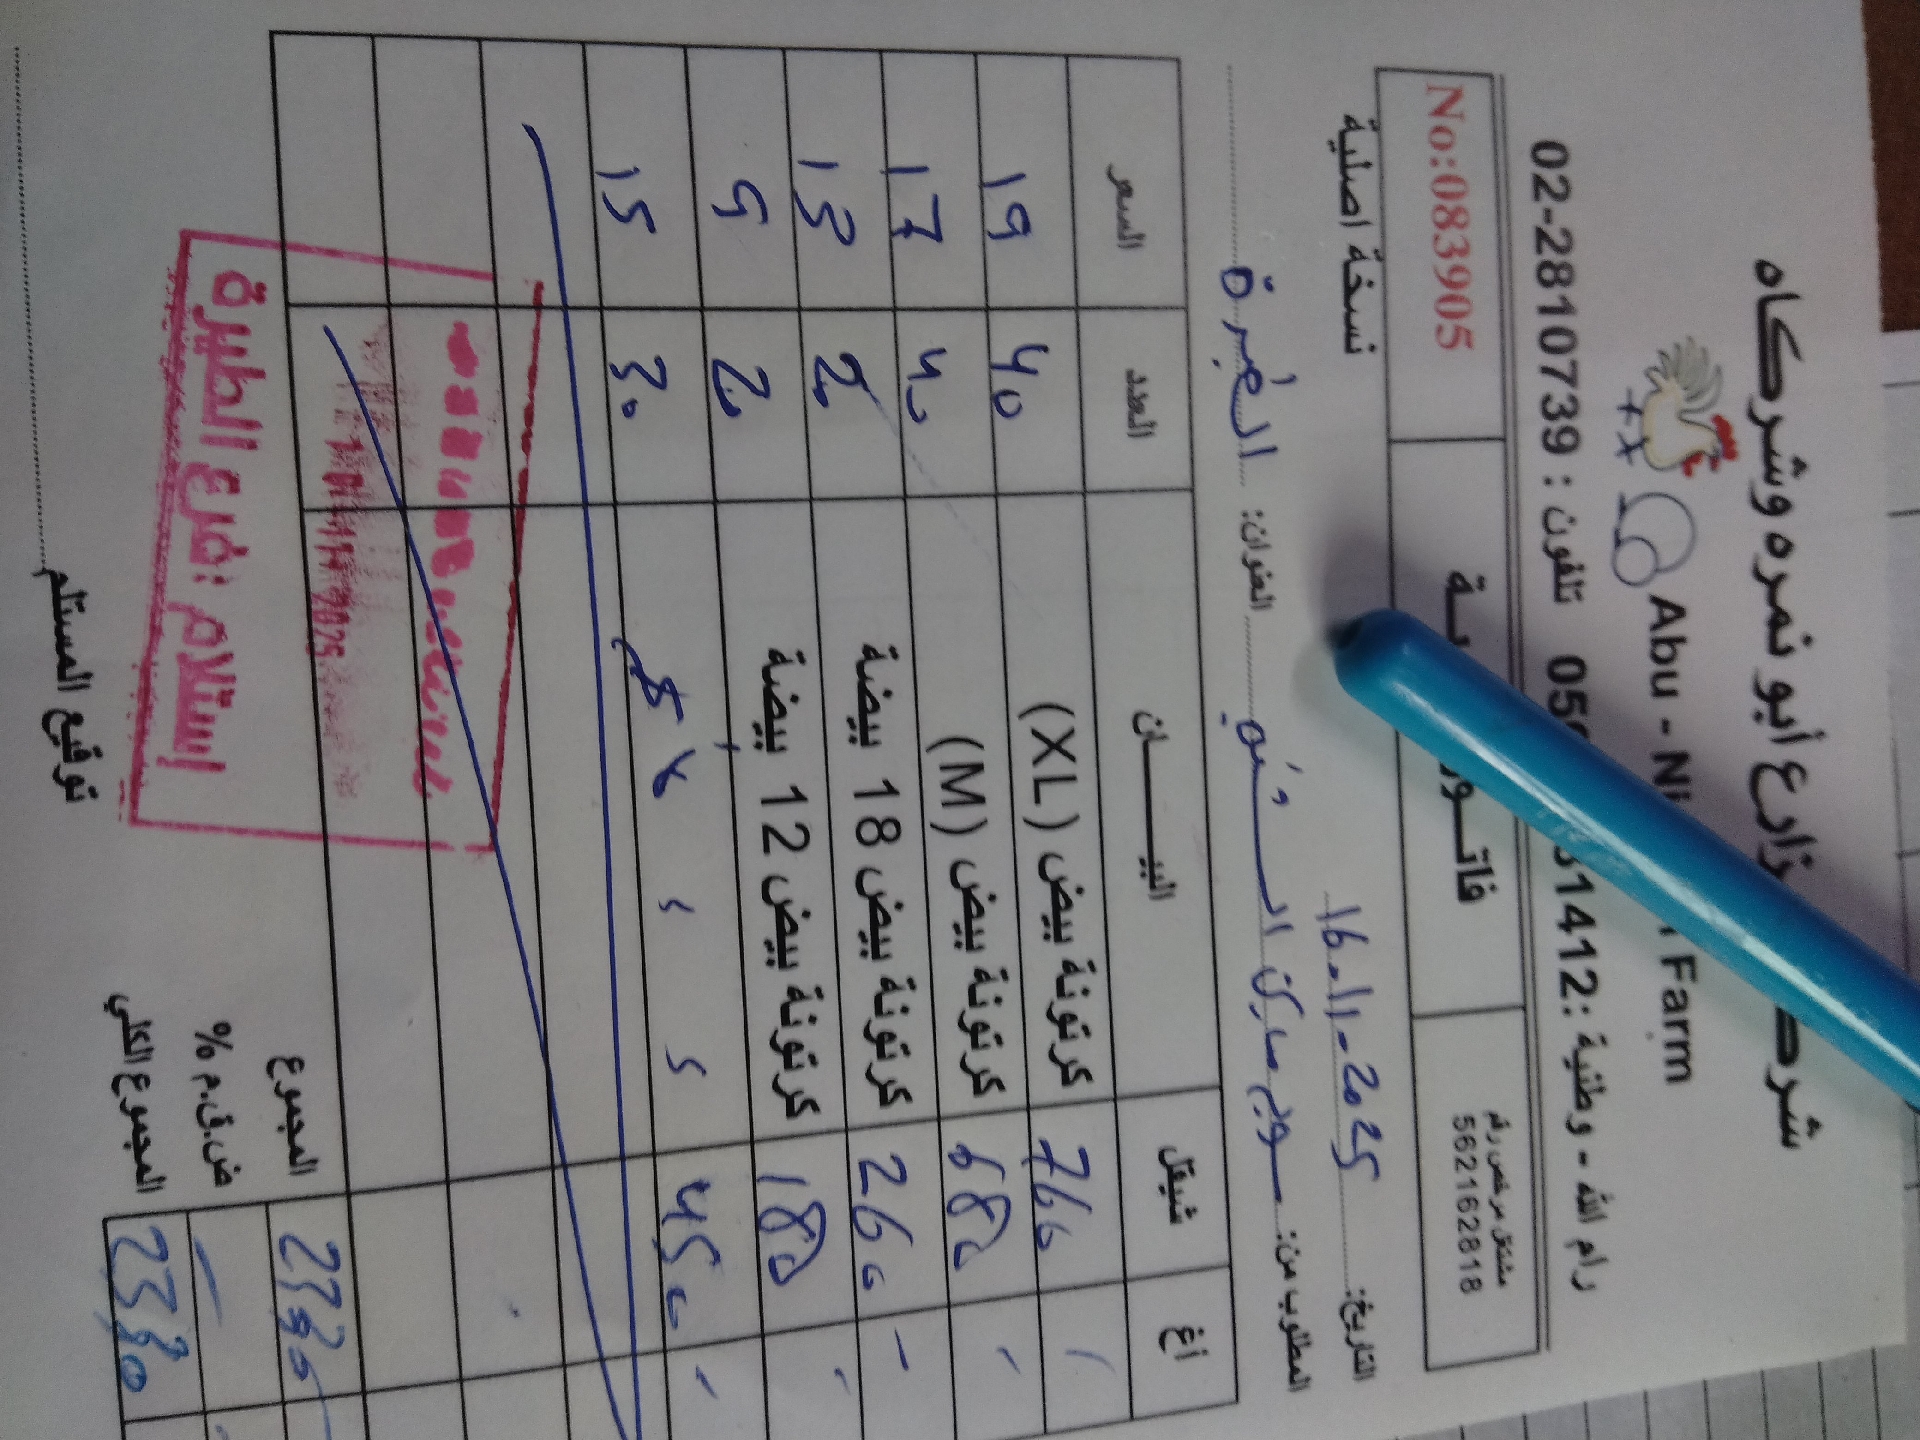 شركة مزارع أبو نمره وشركاه
Abu - Ni Farm
رام الله - وطنية : 31412 059 تلفون : 02-2810739
مشتغل مرخص رقم
562162818
No:083905
نسخة اصلية
التاريخ: 16-11-2025
المطلوب من: سوبر ماركت السنبو العنوان: الطيرة
أغ شيقل البيــــان العدد السعر
760 كرتونة بيض (XL) 40 19
680 كرتونة بيض (M) 40 17
260 كرتونة بيض 18 بيضة 20 13
180 كرتونة بيض 12 بيضة 20 9
450 30 15
المجموع 2330
ض.ق.م %
المجموع الكلي 2330
إستلام : فرع الطيرة
توقيع المستلم